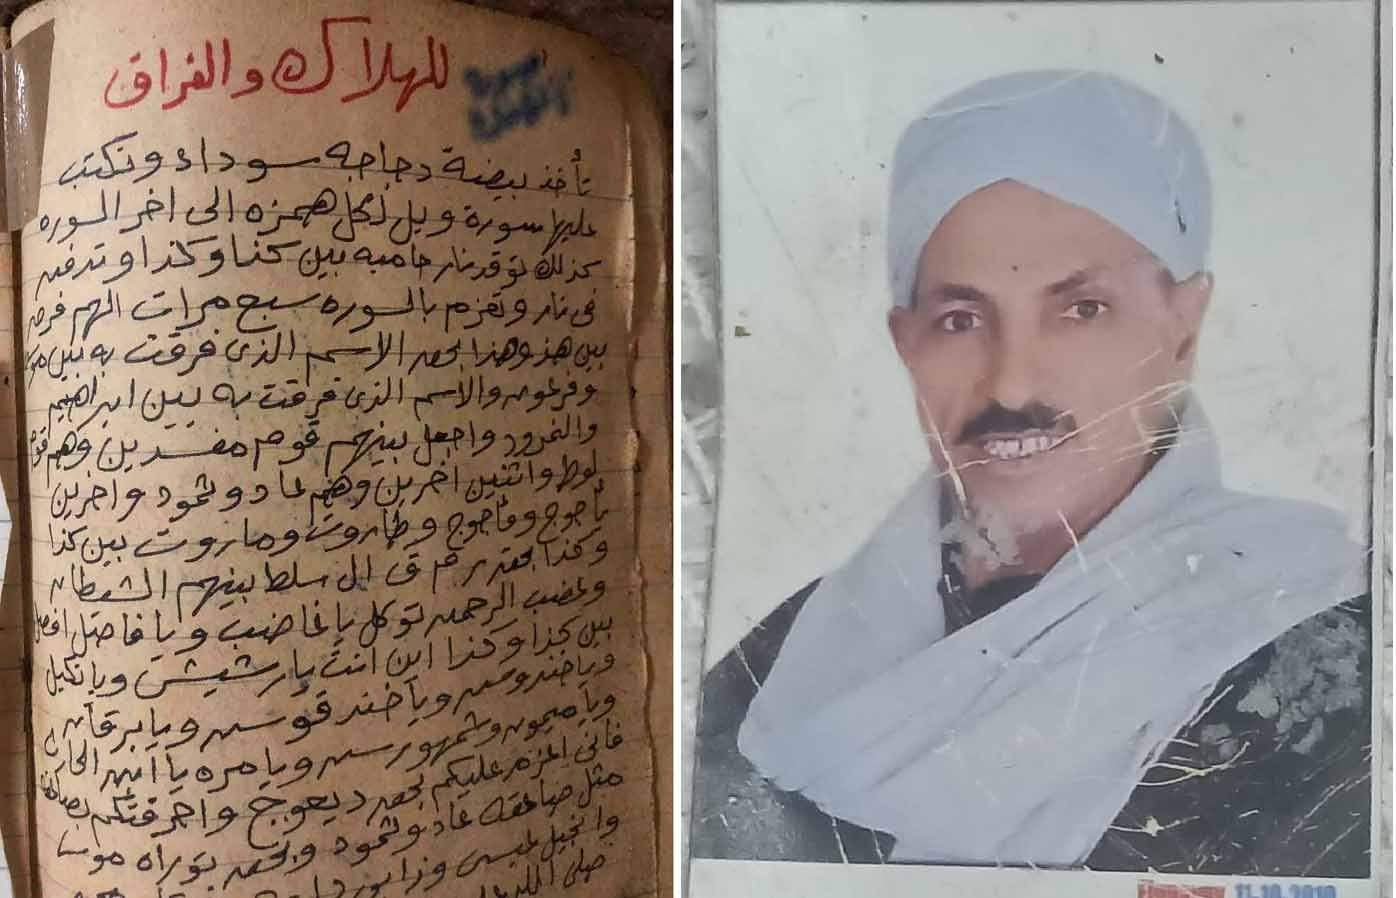 للهلاك والفراق
تأخذ بيضة دجاجه سوداء وتكتب
عليها سورة ويل لكل همزه الى اخر السوره
كذلك توقد نار حاميه بين كذا وكذا وتدفن
فى نار وتعزم بالسوره سبع مرات الهم فرق
بين هذ وهذا بحق الاسم الذى فرقت به بين
وفرعون والاسم الذى فرقت به بين ابراهيم
والنمرود واجعل بينهم قوم مفسدين وهم قوم
لوط واثنين اخرين وهم عاد وثمود واخرين
يأجوج ومأجوج وهاروت وماروت بين كذا
وكذا بحق ال سلط بينهم الشيطان
وغضب الرحمن توكل يا غاضب ويا فاصل افصل
بين كذا وكذا اين انت يا رشيش ويا نكيل
ويا خندوس ويا خندقوس ويا برقان
ويا ميمون وشمهورس ويا مره يا ابن الحارث
فانى اعزم عليكم بحق ديعوج واحرقتكم
مثل صاعقه عاد وثمود وبحق توراه موسى
وانجيل عيسى وزابور
صلى الله
11-10-2010